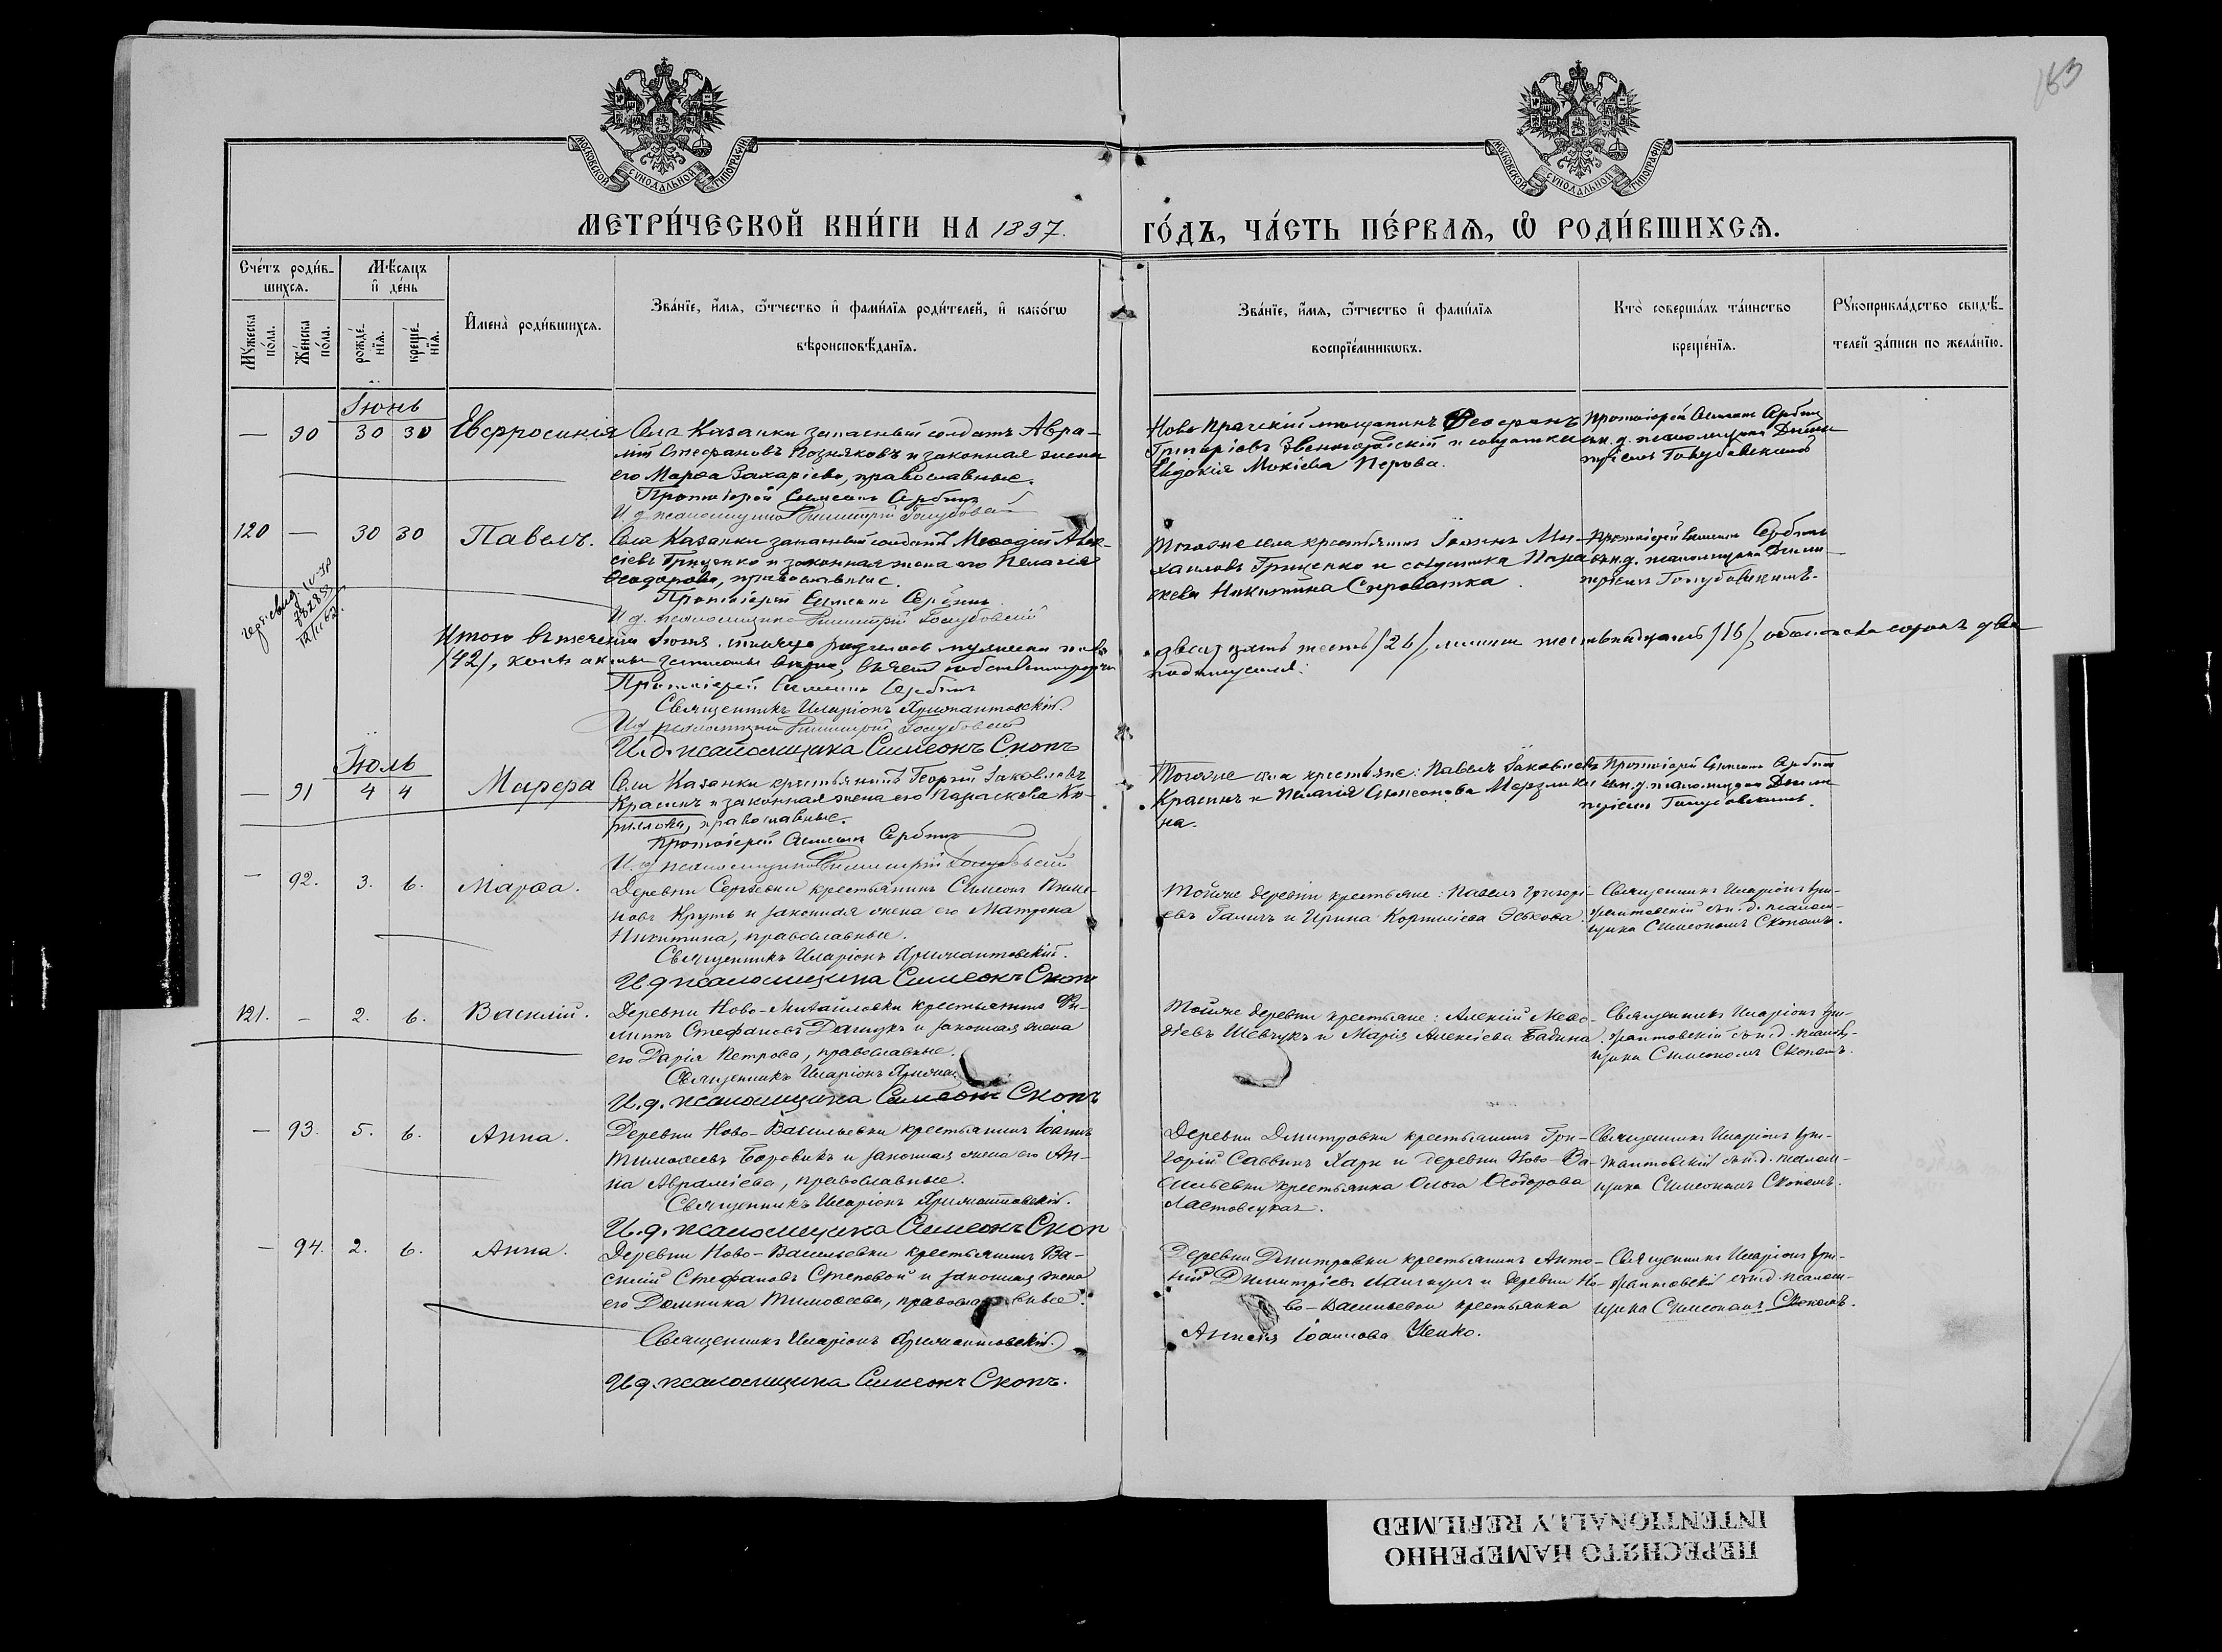 163
МОСКОВСКОЙ СѴНОДАЛЬНОЙ ТИПОГРАФІИ
МОСКОВСКОЙ СѴНОДАЛЬНОЙ ТИПОГРАФІИ
МЕТРИ́ЧЕСКОЙ КНИ́ГИ НА 1897. ГО́ДЪ, ЧА́СТЬ ПЕ́РВАѦ, Ѡ҆ РОДИ́ВШИХСѦ.
Сче́тъ роди́в-
шихсѧ.
Мꙋ́жеска по́ла.
Же́нска по́ла.
Мѣ́сѧцъ
и҆ де́нь
рожде́-
нїѧ.
креще́-
нїѧ.
И҆мена̀ роди́вшихсѧ.
Зва́нїе, и҆́мѧ, ѻ҆́тчество и҆ фами́лїѧ роди́телей, и҆ како́гѡ
вѣроисповѣ́данїѧ.
Зва́нїе, и҆́мѧ, ѻ҆́тчество и҆ фами́лїѧ
воспрїе́мникѡвъ.
Кто̀ соверша́лъ та́инство
креще́нїѧ.
Рꙋкоприкла́дство свидѣ́-
телей за́писи по жела́нїю.
Іюнь
— 90 30 30 Евфросинія
Села Казанки запасный солдатъ Авра-
мій Стефановъ Позняковъ и законная жена
его Марѳа Захаріева, православные.
Протоіерей Симеонъ Сербинъ
И. д. псаломщика Димитрій Голубовскій
Ново Прагскій мѣщанинъ Ѳеофанъ
Григоріевъ Звенигородскій и солдатка
Евдокія Мокіева Перова.
Протоіерей Симеонъ Сербинъ
съ и. д. псаломщика Дими-
тріемъ Голубовскимъ
120 — 30 30 Павелъ.
Села Казанки запасный солдатъ Меѳодій Алек-
сіевъ Гриценко и законная жена его Пелагія
Ѳеодорова, православные.
Протоіерей Симеонъ Сербинъ
И. д. псаломщика Димитрій Голубовскій
Тогоже села крестьянинъ Іоаннъ Ми-
хаиловъ Гриценко и солдатка Пара-
скева Никитина Сыроватка.
Протоіерей Симеонъ Сербинъ
съ и. д. псаломщика Дими-
тріемъ Голубовскимъ.
Итого въ теченіи Іюня мѣсяца родилось мужеска пола двадцать шесть /26/, женска шестьнадцать /16/, обоего пола сорокъ два
/42/, коихъ акты записаны вѣрно, въ чемъ собственноручно подписуемся:
Протоіерей Симеонъ Сербинъ
Священникъ Иларіонъ Хрисантовскій.
И. д. псаломщика Димитрій Голубовскій
И. д. псаломщика Симеонъ Скопъ
Іюль
— 91 4 4 Марѳа
Села Казанки крестьянинъ Георгій Іаковлевъ
Красинъ и законная жена его Параскева Ки-
риллова, православные.
Протоіерей Симеонъ Сербинъ
И. д. псаломщика Димитрій Голубовскій
Тогоже села крестьяне: Павелъ Іаковлевъ
Красинъ и Пелагія Симеонова Мерзлики-
на.
Протоіерей Симеонъ Сербинъ
съ и. д. псаломщика Дими-
тріемъ Голубовскимъ.
— 92. 3. 6. Марѳа.
Деревни Сергѣевки крестьянинъ Симеонъ
новъ Круть и законная жена его Матрона
Никитина, православные.
Священникъ Иларіонъ Хрисантовскій.
И д псаломщика Симеонъ Скопъ
Тойже деревни крестьяне: Павелъ Григорі-
евъ Галичъ и Ирина Корниліева Эськова.
Священникъ Иларіонъ Хри-
сантовскій съ и. д. псалом-
щика Симеономъ Скопомъ.
121. — 2. 6. Василій.
Деревни Ново-Михайловки крестьянинъ Фи-
липпъ Стефановъ Дашукъ и законная жена
его Дарія Петрова, православные.
Священникъ Иларіонъ
И. д. псаломщика Симеонъ Скопъ
Тойже деревни крестьяне: Алексій Меѳо-
діевъ Шевчукъ и Марія Алексіева Бабина.
Священникъ Иларіонъ Хри-
сантовскій съ и. д. псалом-
щика Симеономъ Скопомъ.
— 93. 5. 6. Анна.
Деревни Ново-Васильевки крестьянинъ Іоаннъ
Тимоѳеевъ Боровикъ и законная жена его Ан-
на Авраміева, православные.
Священникъ Иларіонъ Хрисантовскій.
И. д. псаломщика Симеонъ Скоп
Деревни Дмитровки крестьянинъ Гри-
горій Саввинъ Харн и деревни Ново-Ва-
сильевки крестьянка Ольга Ѳеодорова
Ластовецкая.
Священникъ Иларіонъ Хри-
сантовскій съ и. д. псалом-
щика Симеономъ Скопомъ.
— 94. 2. 6. Анна.
Деревни Ново-Васильевки крестьянинъ Ва-
силій Стефановъ Степовой и законная жена
его Домника Тимоѳеева, православные.
Священникъ Иларіонъ Хрисантовскій.
И д. псаломщика Симеонъ Скопъ.
Деревни Дмитровки крестьянинъ Анто-
ній Димитріевъ и деревни Но-
во-Васильевки крестьянка
Іоаннова Ценко.
Священникъ Иларіонъ Хри-
сантовскій съ и. д. псалом-
щика Симеономъ Скопомъ.
ПЕРЕСНЯТО НАМЕРЕННО
INTENTIONALLY REFILMED